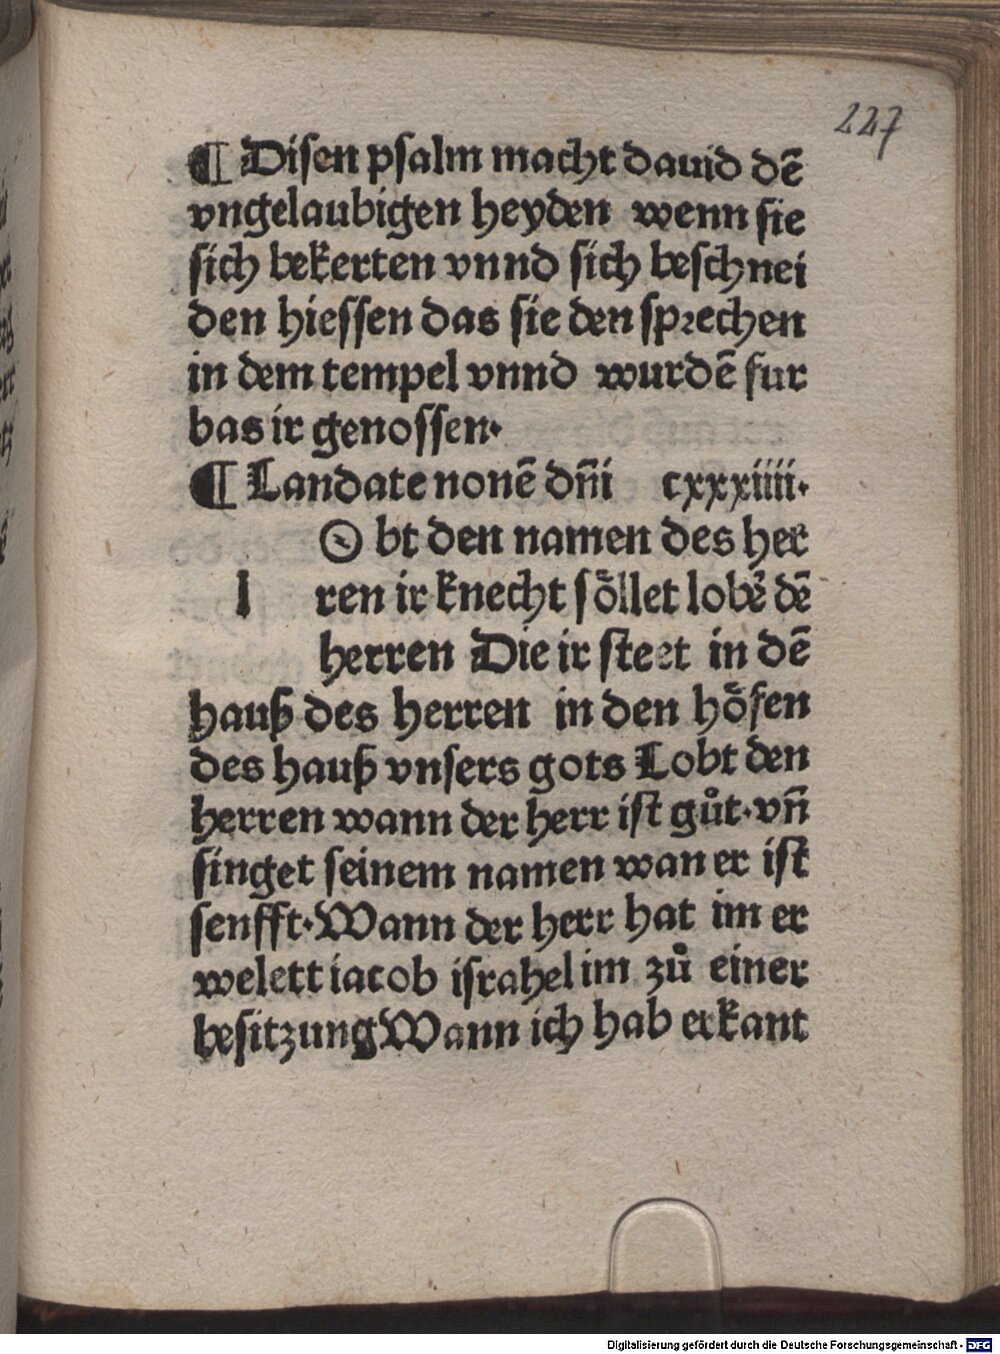 227
¶ Disen psalm macht dauid dē
vngelaubigen heyden wenn sie
sich bekerten vnnd sich beschnei
den hiessen das sie den sprechen
in dem tempel vnnd wurdē fur
bas ir genossen.
¶ Landate nonē dn̄i cxxxiiii.
Obt den namen des her
l ren ir knecht sŏllet lobē dē
herren Die ir steet in dē
hauß des herren in den hŏfen
des hauß vnsers gots Lobt den
herren wann der herr ist gůt. vn̄
singet seinem namen wan er ist
senfft. Wann der herr hat im er
welett iacob israhel im zů einer
besitzung Wann ich hab erkant
Digitalisierung gefördert durch die Deutsche Forschungsgemeinschaft - DFG